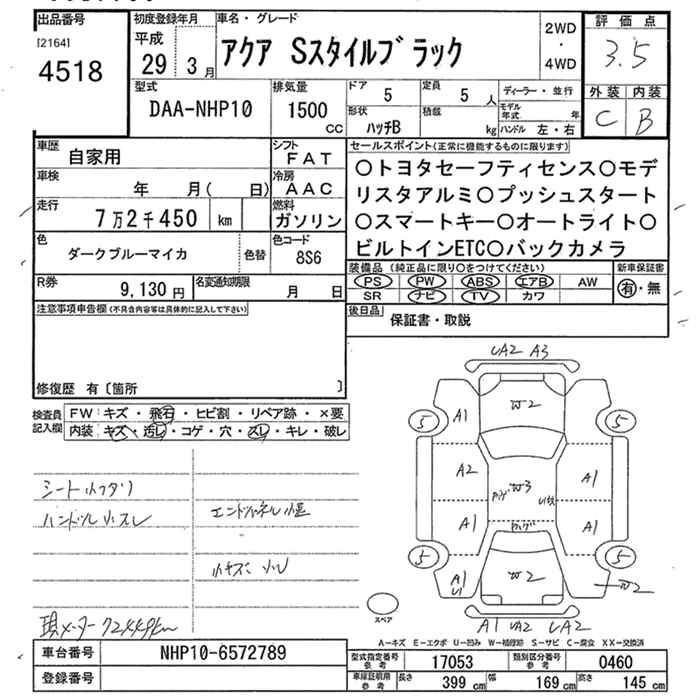 出品番号
[2164]
4518
初度登録年月
平成
29 3月
車名・グレード
アクア Sスタイルブラック
2WD
・
4WD
評価点
3.5
外装 内装
C B
型式
DAA-NHP10
排気量
1500
cc
ドア 5
定員 5 人
形状 ハッチB
積載 kg
ディーラー・並行
モデル年式 年
ハンドル 左・右
車歴 自家用
シフト FAT
車検 年 月( 日)
冷房 AAC
走行 7万2千450 km
燃料 ガソリン
色 ダークブルーマイカ
色替
色コード 8S6
R券 9,130円
名変通知期限 月 日
セールスポイント(正常に機能するものに限ります)
○トヨタセーフティセンス○モデ
リスタアルミ○プッシュスタート
○スマートキー○オートライト○
ビルトインETC○バックカメラ
装備品 (純正品に限り○をつけてください)
新車保証書
PS PW ABS エアB AW
有・無
SR ナビ TV カワ
後日品
保証書・取説
注意事項申告欄(不具合内容等は具体的に記入して下さい)
修復歴 有〔箇所 〕
検査員記入欄
FW:キズ・飛石・ヒビ割・リペア跡・×要
内装:キズ・汚し・コゲ・穴・スレ・キレ・破レ
ハンドル小スレ
現メーター72449km
UA2 A3
W2
A1
5
5
A2
W3
A1
A1
A1
5
5
A1
U1
W2
W2
スペア
A1 UA2 UA2
A-キズ E-エクボ U-凹み W-補修跡 S-サビ C-腐食 XX-交換済
車台番号 NHP10-6572789
登録番号
型式指定番号参考 17053
類別区分番号参考 0460
車線証明用参考
長さ 399 cm
幅 169 cm
高さ 145 cm